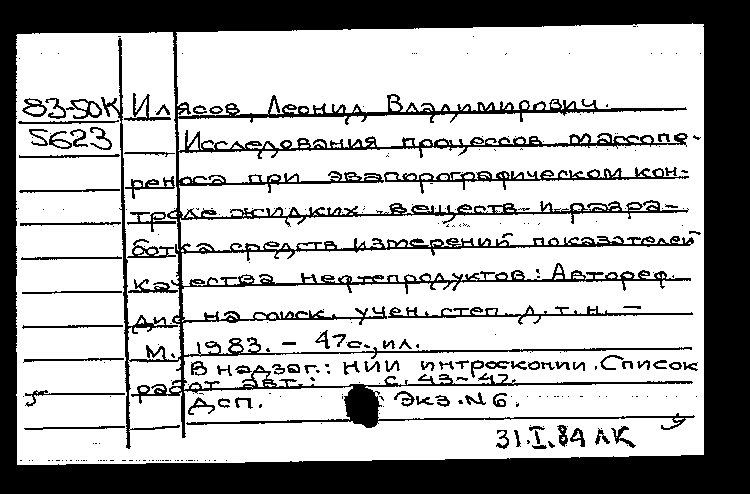 83-50К Илясов, Леонид Владимирович.
5623 Исследования процессов массопе-
реноса при эвапорографическом кон-
троле жидких веществ и разра-
ботка средств измерений показателей
качества нефтепродуктов: Автореф.
дис на соиск. учен. степ. д.т.н. –
М. 1983. – 47с., ил.
В надзаг.: НИИ интроскопии. Список
работ авт.: с. 43-47.
Дсп. Экз. №6.
31.I.84 ЛК